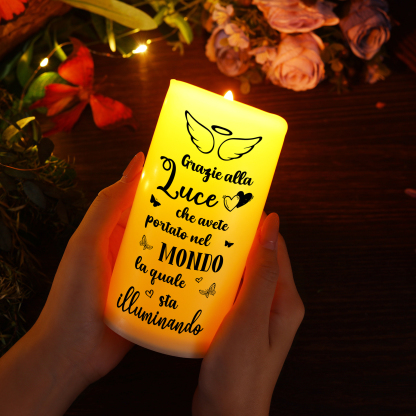 Grazie alla
Luce
che avete
portato nel
MONDO
la quale
sta
illuminando